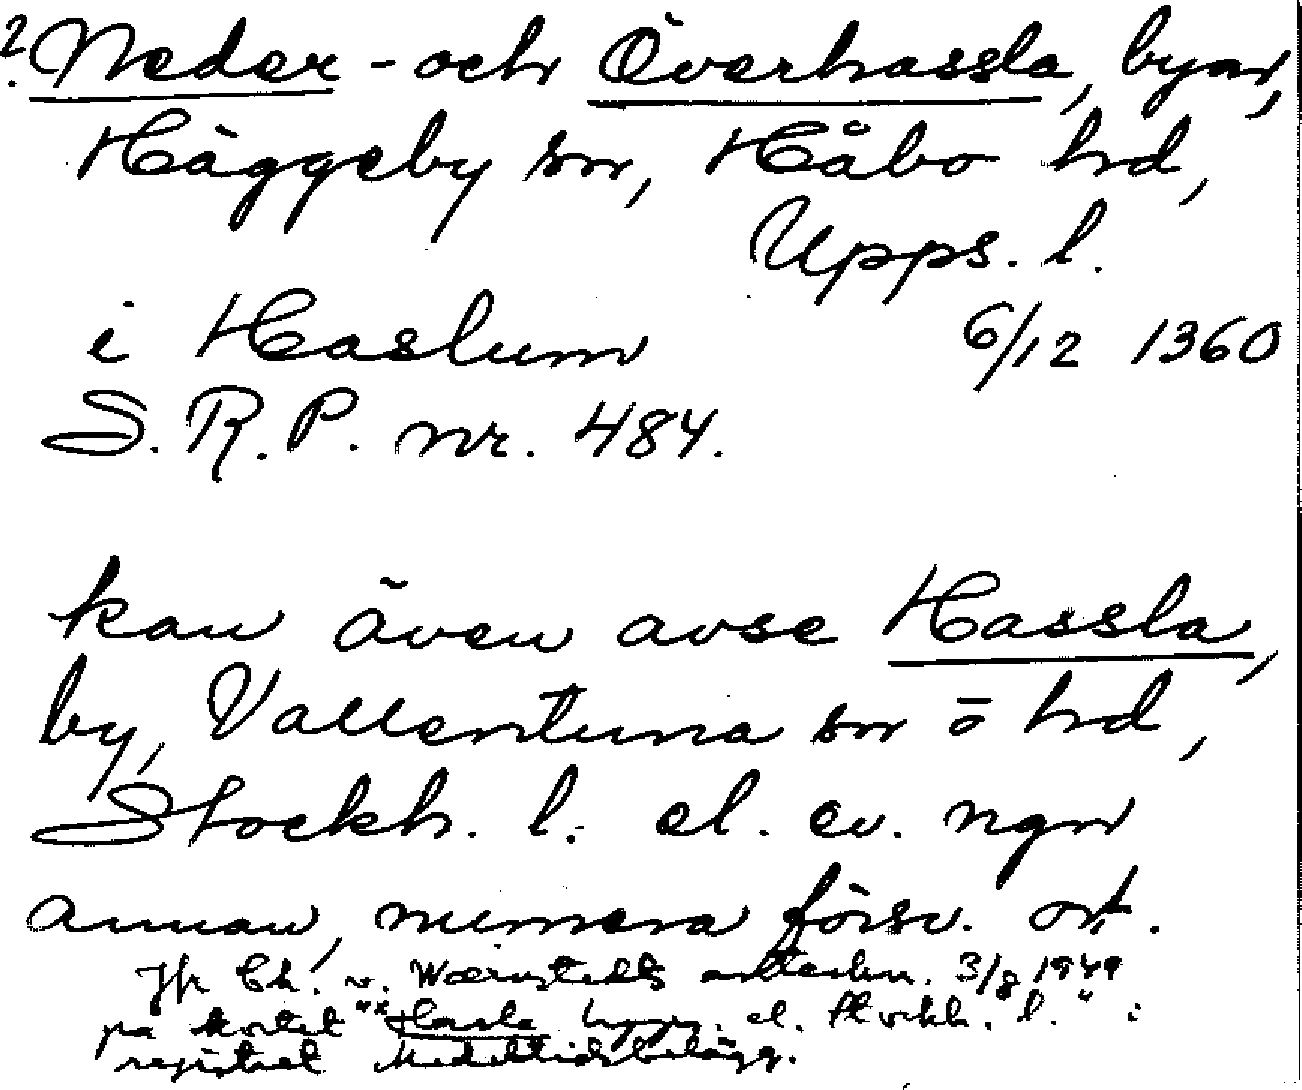 ?. Neder- och Överhassla, byar,
Häggeby sn, Håbo hd,
Upps. l.
i Haslum 6/12 1360
S.R.P. nr. 484.
kan även avse Hassla,
by, Vallentuna sn o hd,
Stockh. l. el. ev. ngn
annan, numera försv. ort.
Jfr C. v. Wærnstedts 3/8 1949
på kortet "*Hasle Upps. el. Stockh. l." i
registret Medeltidsbelägg.